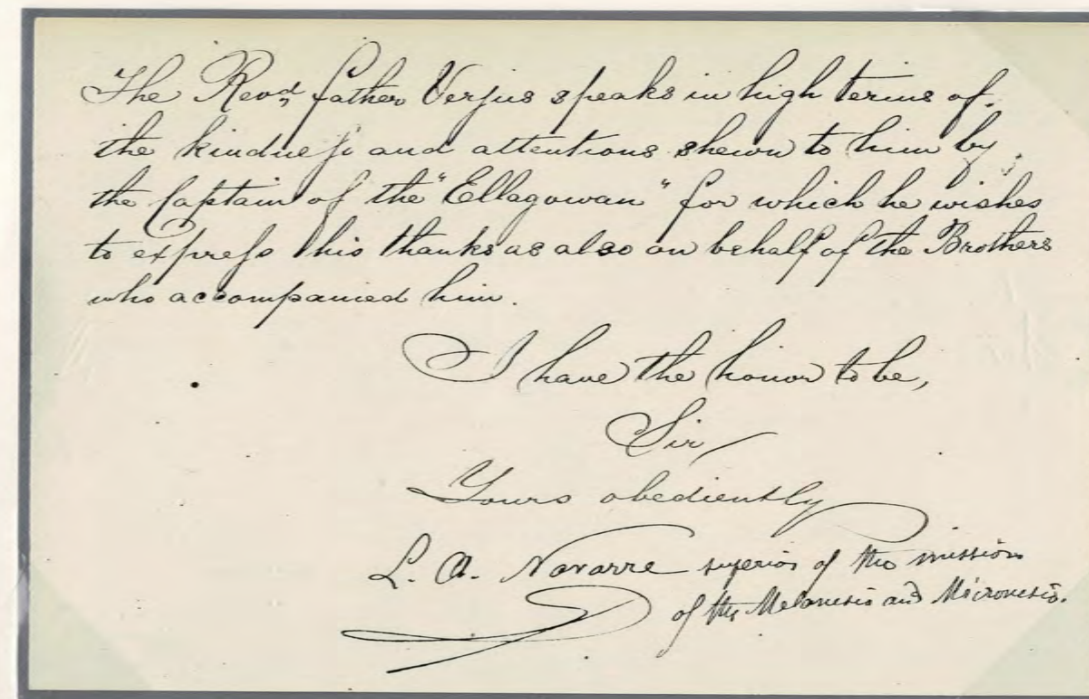 The Revd. father Verjus speaks in high terms of
the kindness and attentions shewn to him by
the Captain of the "Ellagowan" for which he wishes
to express his thanks as also on behalf of the Brothers
who accompanied him.
I have the honor to be,
Sir,
Yours obediently
L. A. Navarre superior of the mission
of the Melanesia and Micronesia.